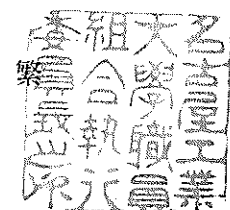 名古屋工業
大学職員
組合執行
委員長之印
繁